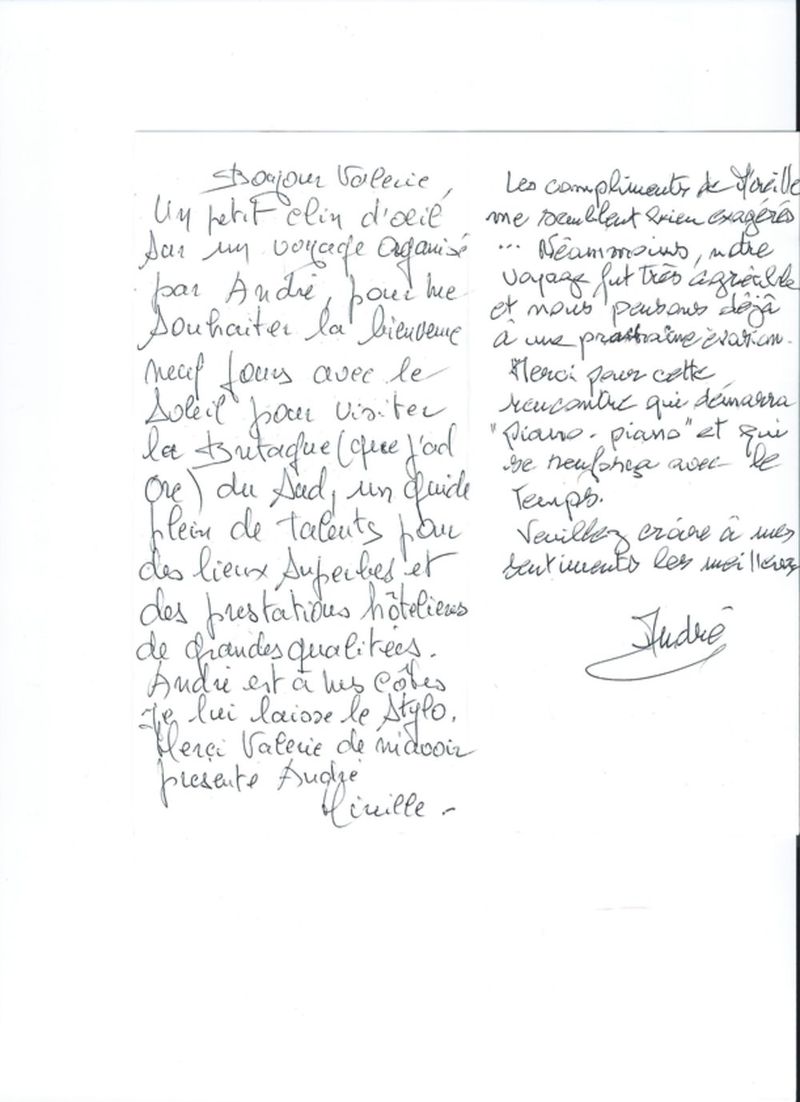 Bonjour Valerie,
Un petit clin d'oeil
sur un voyage organisé
par André, pour me
souhaiter la bienvenue
neuf jours avec le
Soleil pour visiter
la Bretagne (que j'ad
ore) du Sud, un guide
plein de talents pour
des lieux superbes et
des prestations hôtelieres
de grandes qualitées.
André est à mes côtes
Je lui laisse le stylo.
Merci Valerie de m'avoir
presente André
Mireille -
Les compliments de Mireille
me semblent bien exagérés
... Néammoins, notre
voyage fut très agréable
et nous pensons déjà
à une prochaine évasion.
Merci pour cette
rencontre qui démarra
"piano - piano" et qui
se renforça avec le
temps.
Veuillez croire à mes
sentiments les meilleurs
André